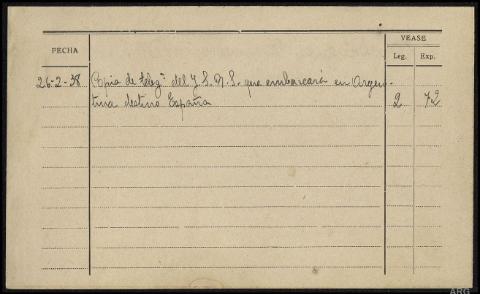 FECHA
VEASE
Leg. Exp.
26-2-38 Copia de teleg.ª del Y.S.M.S. que embarcará en Argen-
tina destino España 2 72
ARG